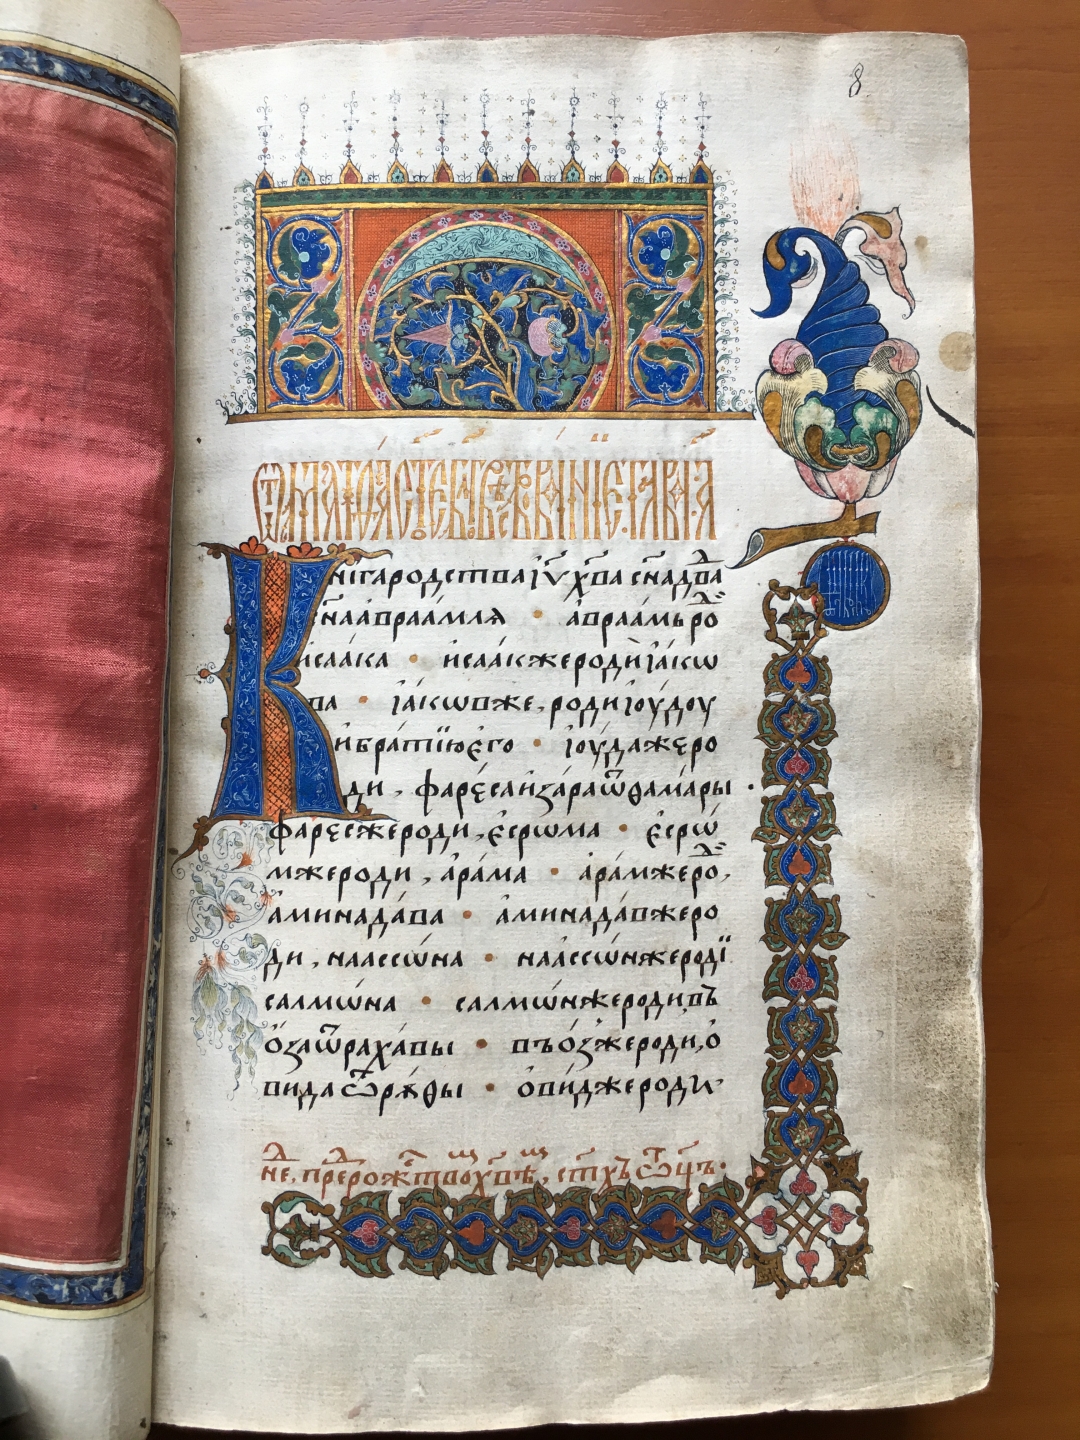 8
Ѿ маттеа ст҃ое бл҃говѣствованіе. глава. а҃
Кнігародства і҆у҃ х҃ва сн҃а дв҃два
сн҃а а҆враа́мля • а҆враа́мь ро
и҆саа́ка • и҆саа́кже роди̇̀ і҆а́кѡ
ва • і҆а́кѡвже, роди і҆оу́доу
и҆бра́тїю є҆го • і҆оу́дажєро
ди, фаре́са и҆ за́ра ѿ ѳама́ры •
фаре́сжероди, є҆срѡма • є҆срѡ́
мжероди, а҆ра́ма • а҆ра́мжерод,
а҆минада́ва • а҆минада́вжеро
ди, наассѡ́на • наассѡ́нжеродї
салмѡ́на • салмѡ́нжероди, въ
о҆за ѿ раха́вы • въо҆́зжероди, о҆
вида ѿ рѹ́ѳы • о҆ви́джероди
нед, пред рожⷭтвом х҃вѣм, ст҃хъ ѿц҃ъ.